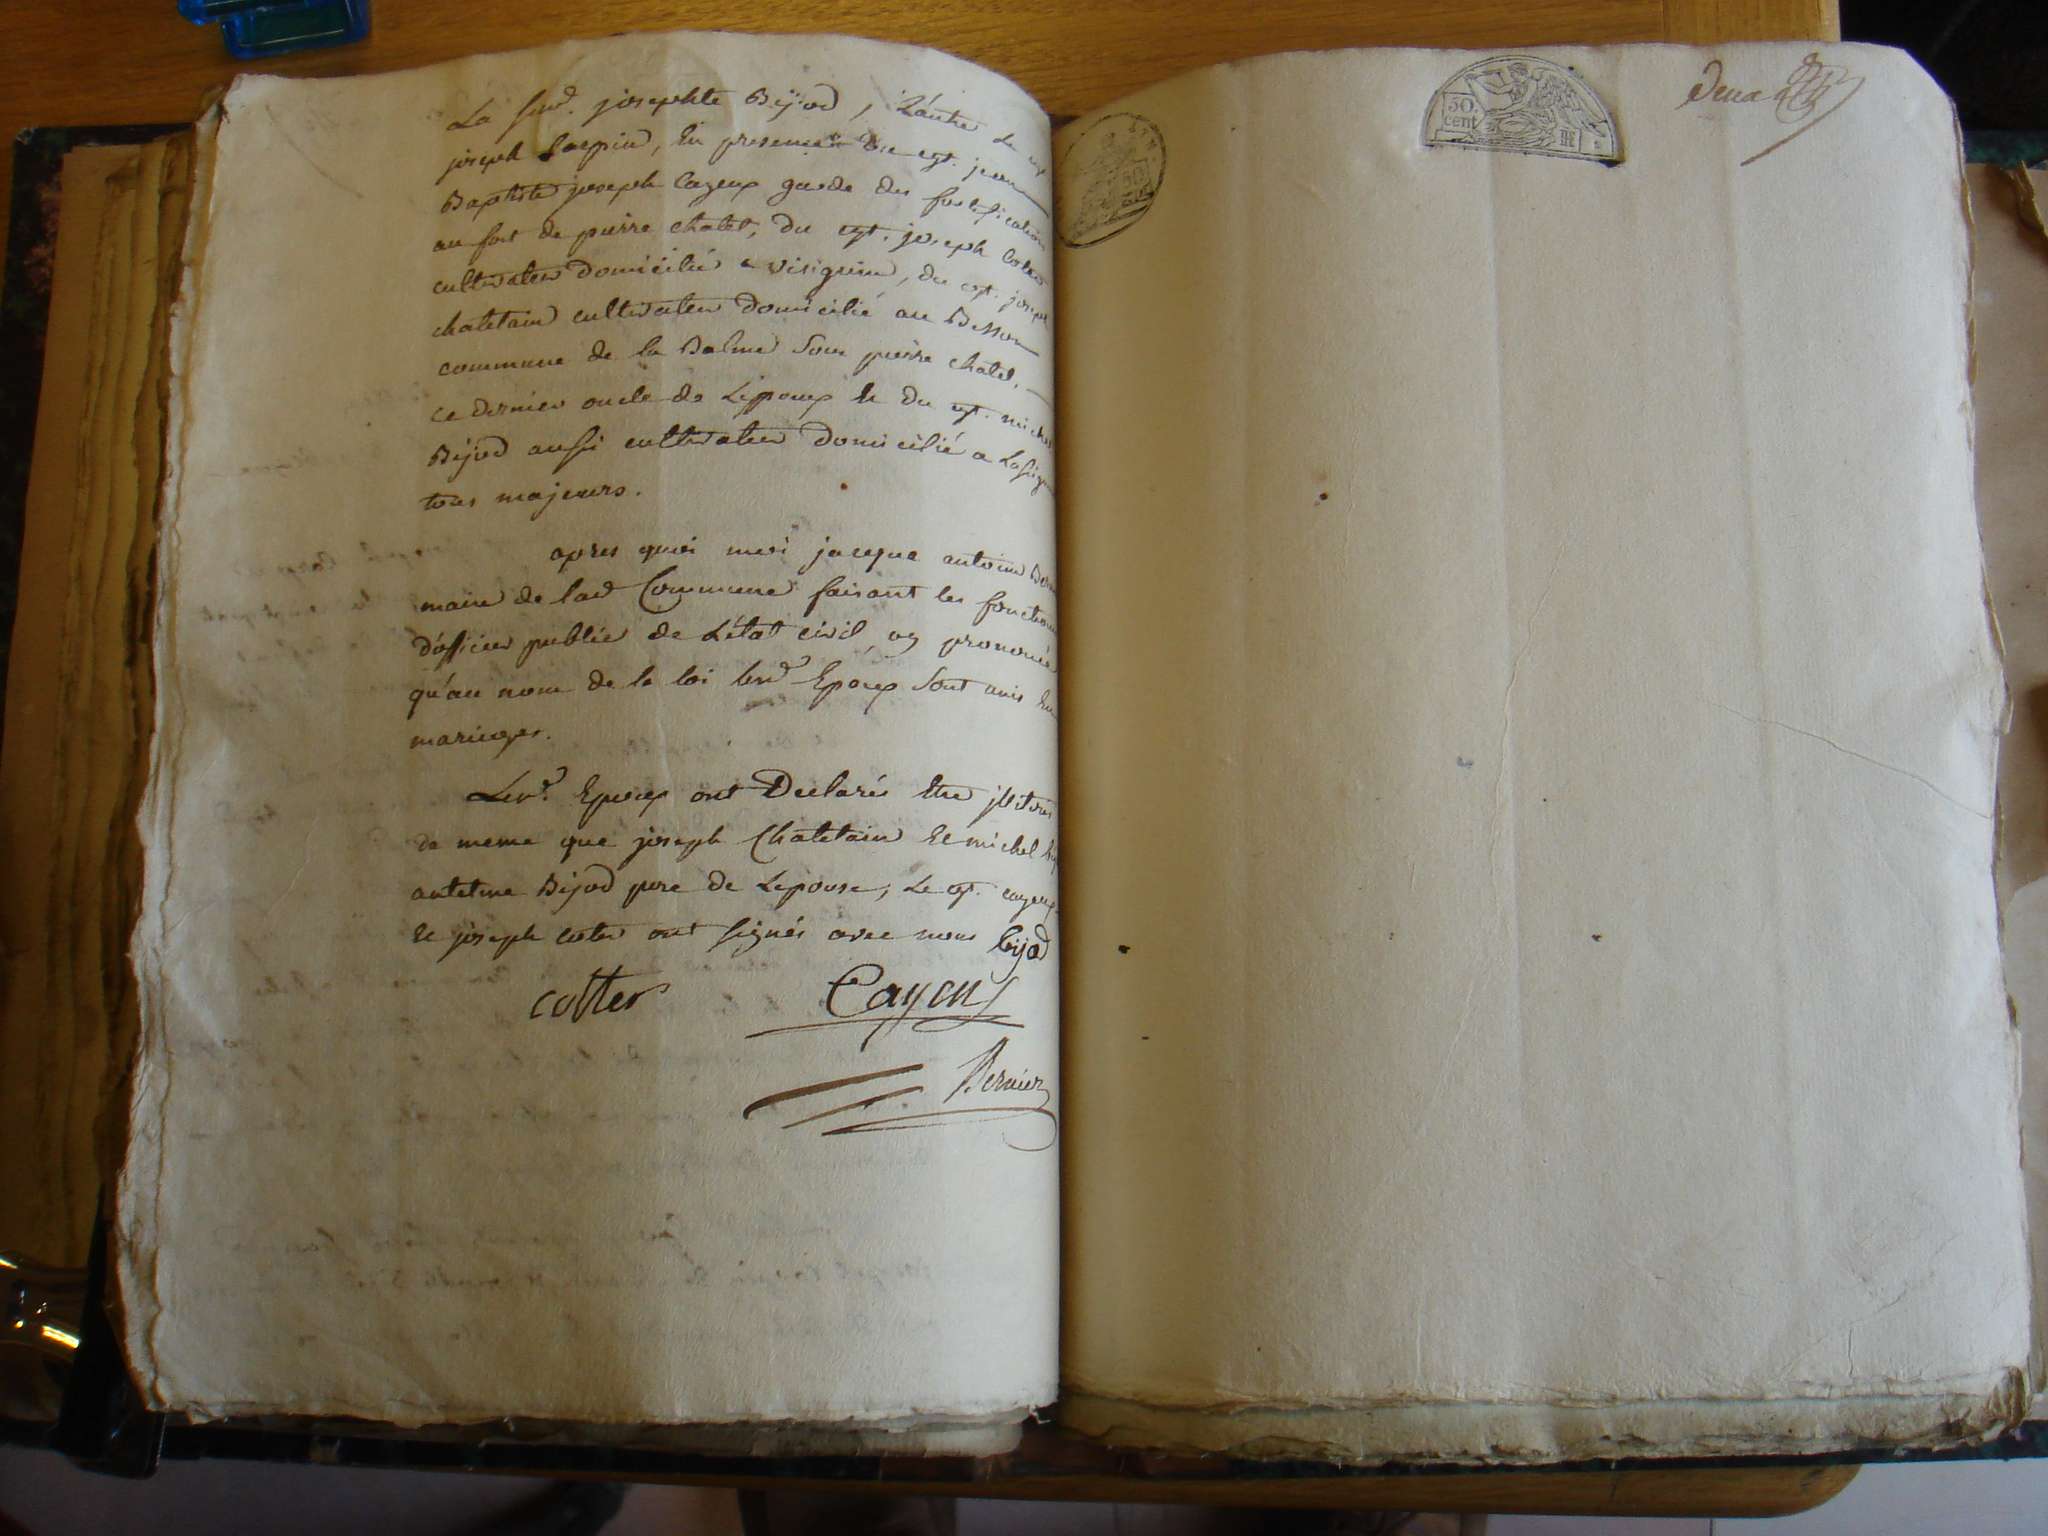 La sus.d josephte Bijod, L'autre de
joseph Carpin, En presence du cyt. jean
Baptiste joseph Cayeux garde des fortifications
au fort de pierre chatel, du cyt. joseph Coter
cultivateur domicilié a virignin, du cyt. joseph
chatelain cultivateur domicilié au Besson
commune de la Balme Sous pierre chatel,
ce dernier oncle de L'epoux Et du cyt. michel
Bijod aussi cultivateur domicilié a
tous majeurs.
apres quoi moi jacque antoine
maire de lad Commune faisant les fonctions
d'officier public de L'état civil, ay prononcé
qu'au nom de la loi lesd Epoux Sont unis En
mariages.
Lesd. Epoux ont Declarés Etre jlitérés
de meme que joseph Chatelain Et michel
antelme Bijod pere de Lepouse, Le cyt. cayeux
Et joseph coter ont signés avec nous bijod
cotter Cayeux
Bernier
50
cent
Deux